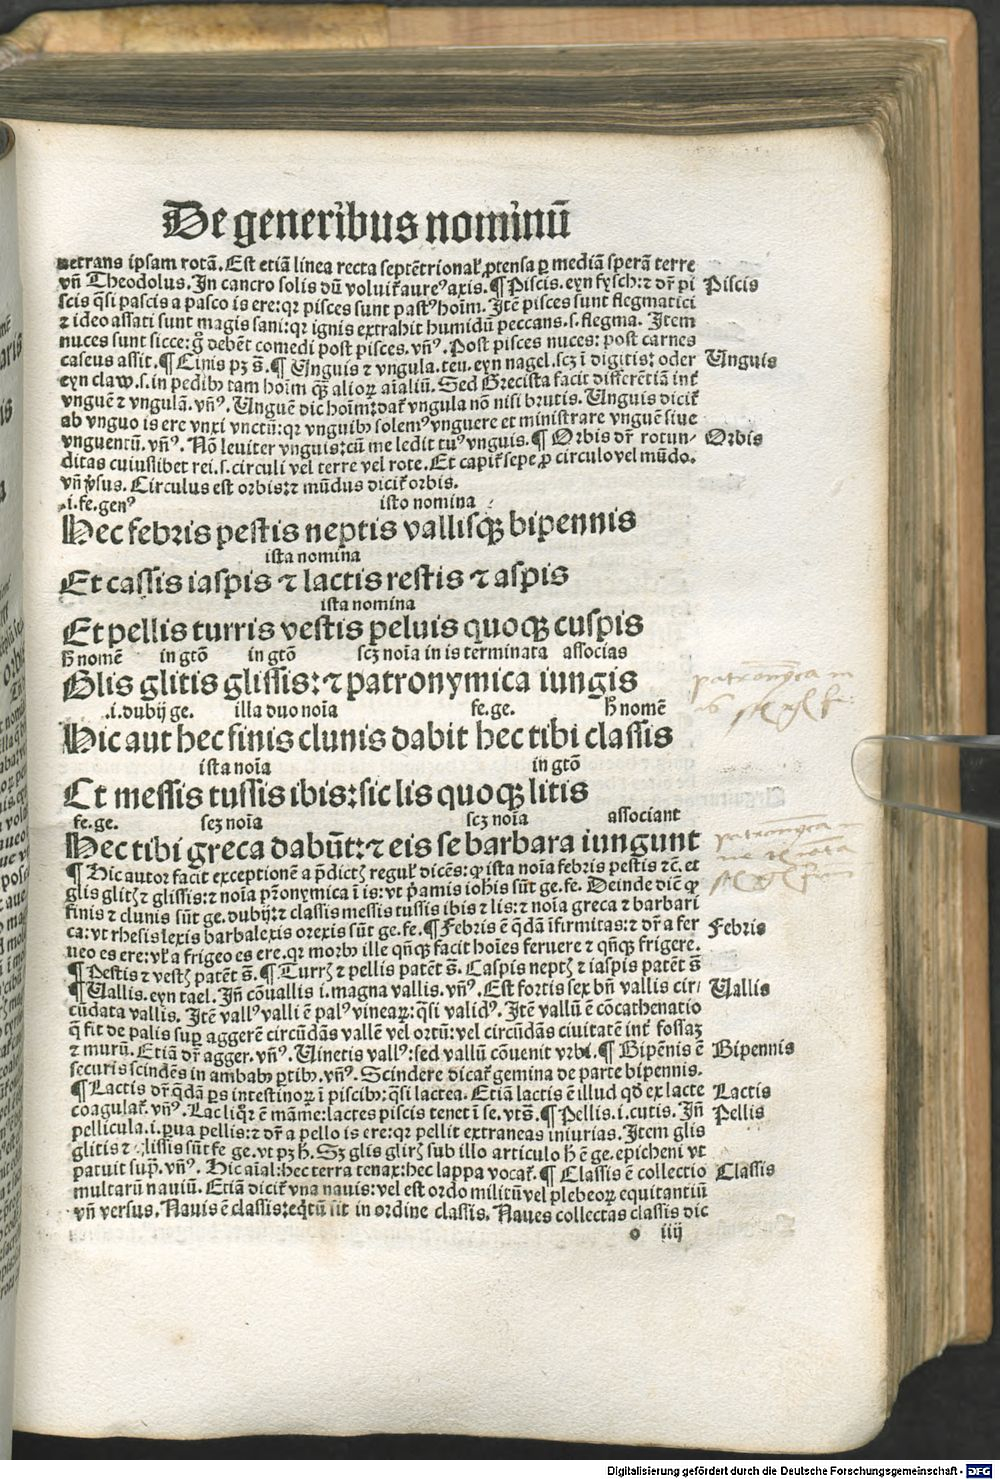 De generibus nominū
netrans ipsam rotā. Est etiā linea recta septētrional ꝓtensa ꝑ mediā sperā terre
vñ Theodolus. In cancro solis dū voluit᷑ aureꝰ axis. ¶ Piscis. eyn fysch: ⁊ dr̄ pi
scis q̄si pascis a pasco is ere: qꝛ pisces sunt pastꝰ hoīm. Itē pisces sunt flegmatici
⁊ ideo assati sunt magis sani: qꝛ ignis extrahit humidū peccans. s. flegma. Item
nuces sunt sicce: debēt comedi post pisces. vñꝰ. Post pisces nuces: post carnes
caseus assit. ¶ Cinis pꝫ s̄. ¶ Unguis ⁊ vngula. teu. eyn nagel. scꝫ ī digitis: oder
eyn claw. s. in pedibꝰ tam hoīm qꝫ alioꝝ aīaliū. Sed Grecista facit differētiā int᷑
vnguē ⁊ vngulā. vñꝰ. Unguē dic hoīm: dat᷑ vngula nō nisi brutis. Unguis dicit᷑
ab vnguo is ere vnxi vnctū: qꝛ vnguibꝰ solemꝰ vnguere et ministrare vnguē siue
vnguentū. vñꝰ. Nō leuiter vnguis: cū me ledit tuꝰ vnguis. ¶ Orbis dr̄ rotun-
ditas cuiuslibet rei. s. circuli vel terre vel rote. Et capit᷑ sepe ꝓ circulo vel mūdo.
vñ ꝟsus. Circulus est orbis: ⁊ mūdus dicit᷑ orbis.
Piscis
Unguis
Orbis
.i. fe. genꝰ isto nomina
Hec febris pestis neptis vallisqꝫ bipennis
ista nomina
Et cassis iaspis ⁊ lactis restis ⁊ aspis
ista nomina
Et pellis turris vestis peluis quoqꝫ cuspis
h̄ nomē in gtō in gtō scꝫ noīa in is terminata associas
Glis glitis glissis: ⁊ patronymica iungis
.i. dubij ge. illa duo noīa fe. ge. h̄ nomē
Hic aut hec finis clunis dabit hec tibi classis
ista noīa in gtō
Et messis tussis ibis: sic lis quoqꝫ litis
fe. ge. scꝫ noīa scꝫ noīa associant
Hec tibi greca dabūt: ⁊ eis se barbara iungunt
¶ Hic autor facit exceptionē a p̄dictꝭ regul᷑ dicēs: ꝙ ista noīa febris pestis ⁊c̄. et
glis glitꝭ ⁊ glissis: ⁊ noīa pr̄onymica ī is: vt p̄amis iohīs sūt ge. fe. Deinde diē ꝙ
finis ⁊ clunis sūt ge. dubij: ⁊ classis messis tussis ibis ⁊ lis: ⁊ noīa greca ⁊ barbari
ca: vt rhesis lexis barbalexis orexis sūt ge. fe. ¶ Febris ē q̄dā īfirmitas: ⁊ dr̄ a fer
ueo es ere: vl᷑ a frigeo es ere. qꝛ morbꝰ ille qn̄qꝫ facit hoīes feruere ⁊ qn̄qꝫ frigere.
¶ Pestis ⁊ vestꝭ patēt s̄. ¶ Turrꝭ ⁊ pellis patēt s̄. Caspis neptꝭ ⁊ iaspis patēt s̄
¶ Uallis. eyn tael. Iñ cōuallis i. magna vallis. vñꝰ. Est fortis sex bñ vallis cir-
cūdata vallis. Itē vallꝰ valli ē palꝰ vineaꝝ: q̄si validꝰ. Itē vallū ē cōcathenatio
q̄ fit de palis suꝑ aggerē circūdās vallē vel ortū: vel circūdās ciuitatē int᷑ fossaꝫ
⁊ murū. Etiā dr̄ agger. vñꝰ. Uinetis vallꝰ: sed vallū cōuenit vrbi. ¶ Bipēnis ē
securis scindēs in ambabꝰ ꝑtibꝰ. vñꝰ. Scindere dicat᷑ gemina de parte bipennis.
¶ Lactis dr̄ q̄dā ꝑs intestinoꝝ ī piscibꝰ: q̄si lactea. Etiā lactis ē illud qd̄ ex lacte
coagulat᷑. vñꝰ. Lac liqꝛ ē māme: lactes piscis tenet ī se. vts̄. ¶ Pellis. i. cutis. Iñ
pellicula. i. ꝑua pellis: ⁊ dr̄ a pello is ere: qꝛ pellit extraneas iniurias. Item glis
glitis ⁊ glissis sūt fe ge. vt pꝫ h̄. Sꝫ glis glirꝭ sub illo articulo h̄ ē ge. epicheni vt
patuit sup̄. vñꝰ. Hic aīal: hec terra tenax: hec lappa vocat᷑. ¶ Classis ē collectio
multarū nauiū. Etiā dicit᷑ vna nauis: vel est ordo militū vel plebeoꝝ equitantiū
vñ versus. Nauis ē classis: eq̄tū sit in ordine classis. Naues collectas classis dic
Febris
Uallis
Bipennis
Lactis
Pellis
Classis
o iiij
Digitalisierung gefördert durch die Deutsche Forschungsgemeinschaft - DFG